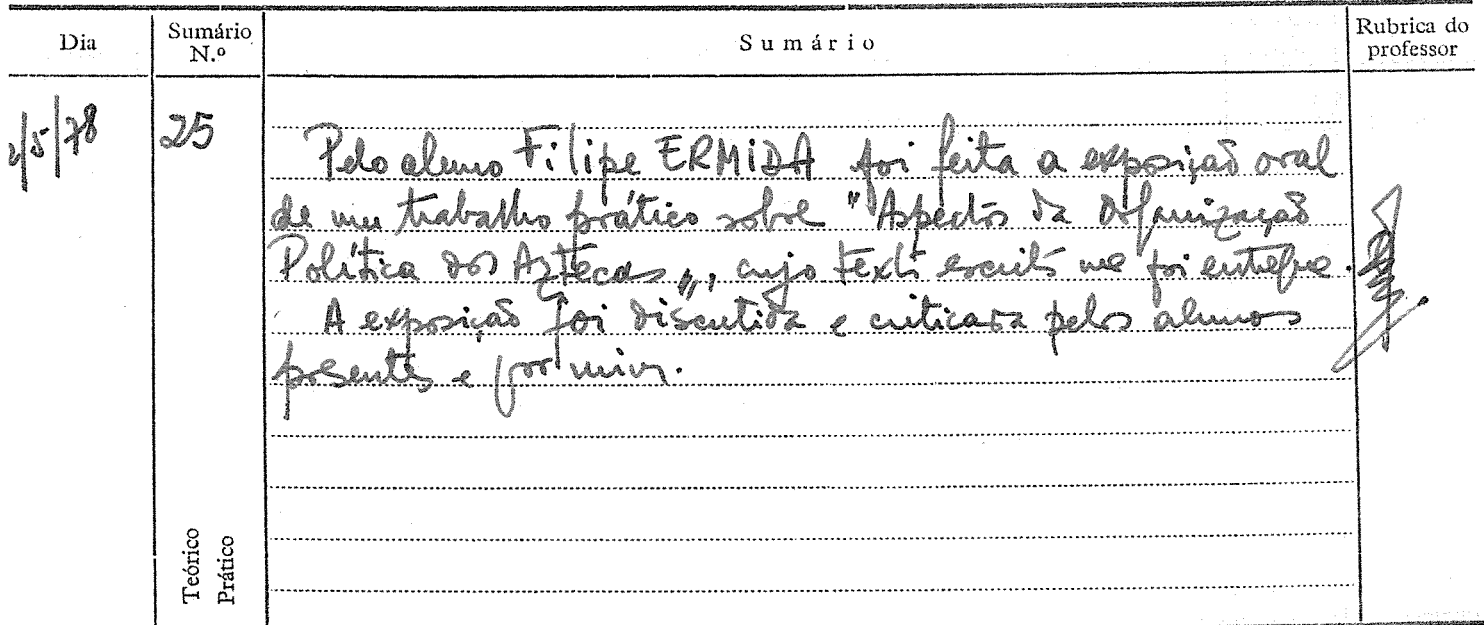 Dia
Sumário N.º
Sumário
Rubrica do professor
2/5/78
25
Pelo aluno Filipe ERMIDA foi feita a exposição oral
de um trabalho prático sobre "Aspectos da Organização
Política dos Aztecas", cujo texto escrito me foi entregue.
A exposição foi discutida e criticada pelos alunos
presentes e por mim.
Teórico
Prático